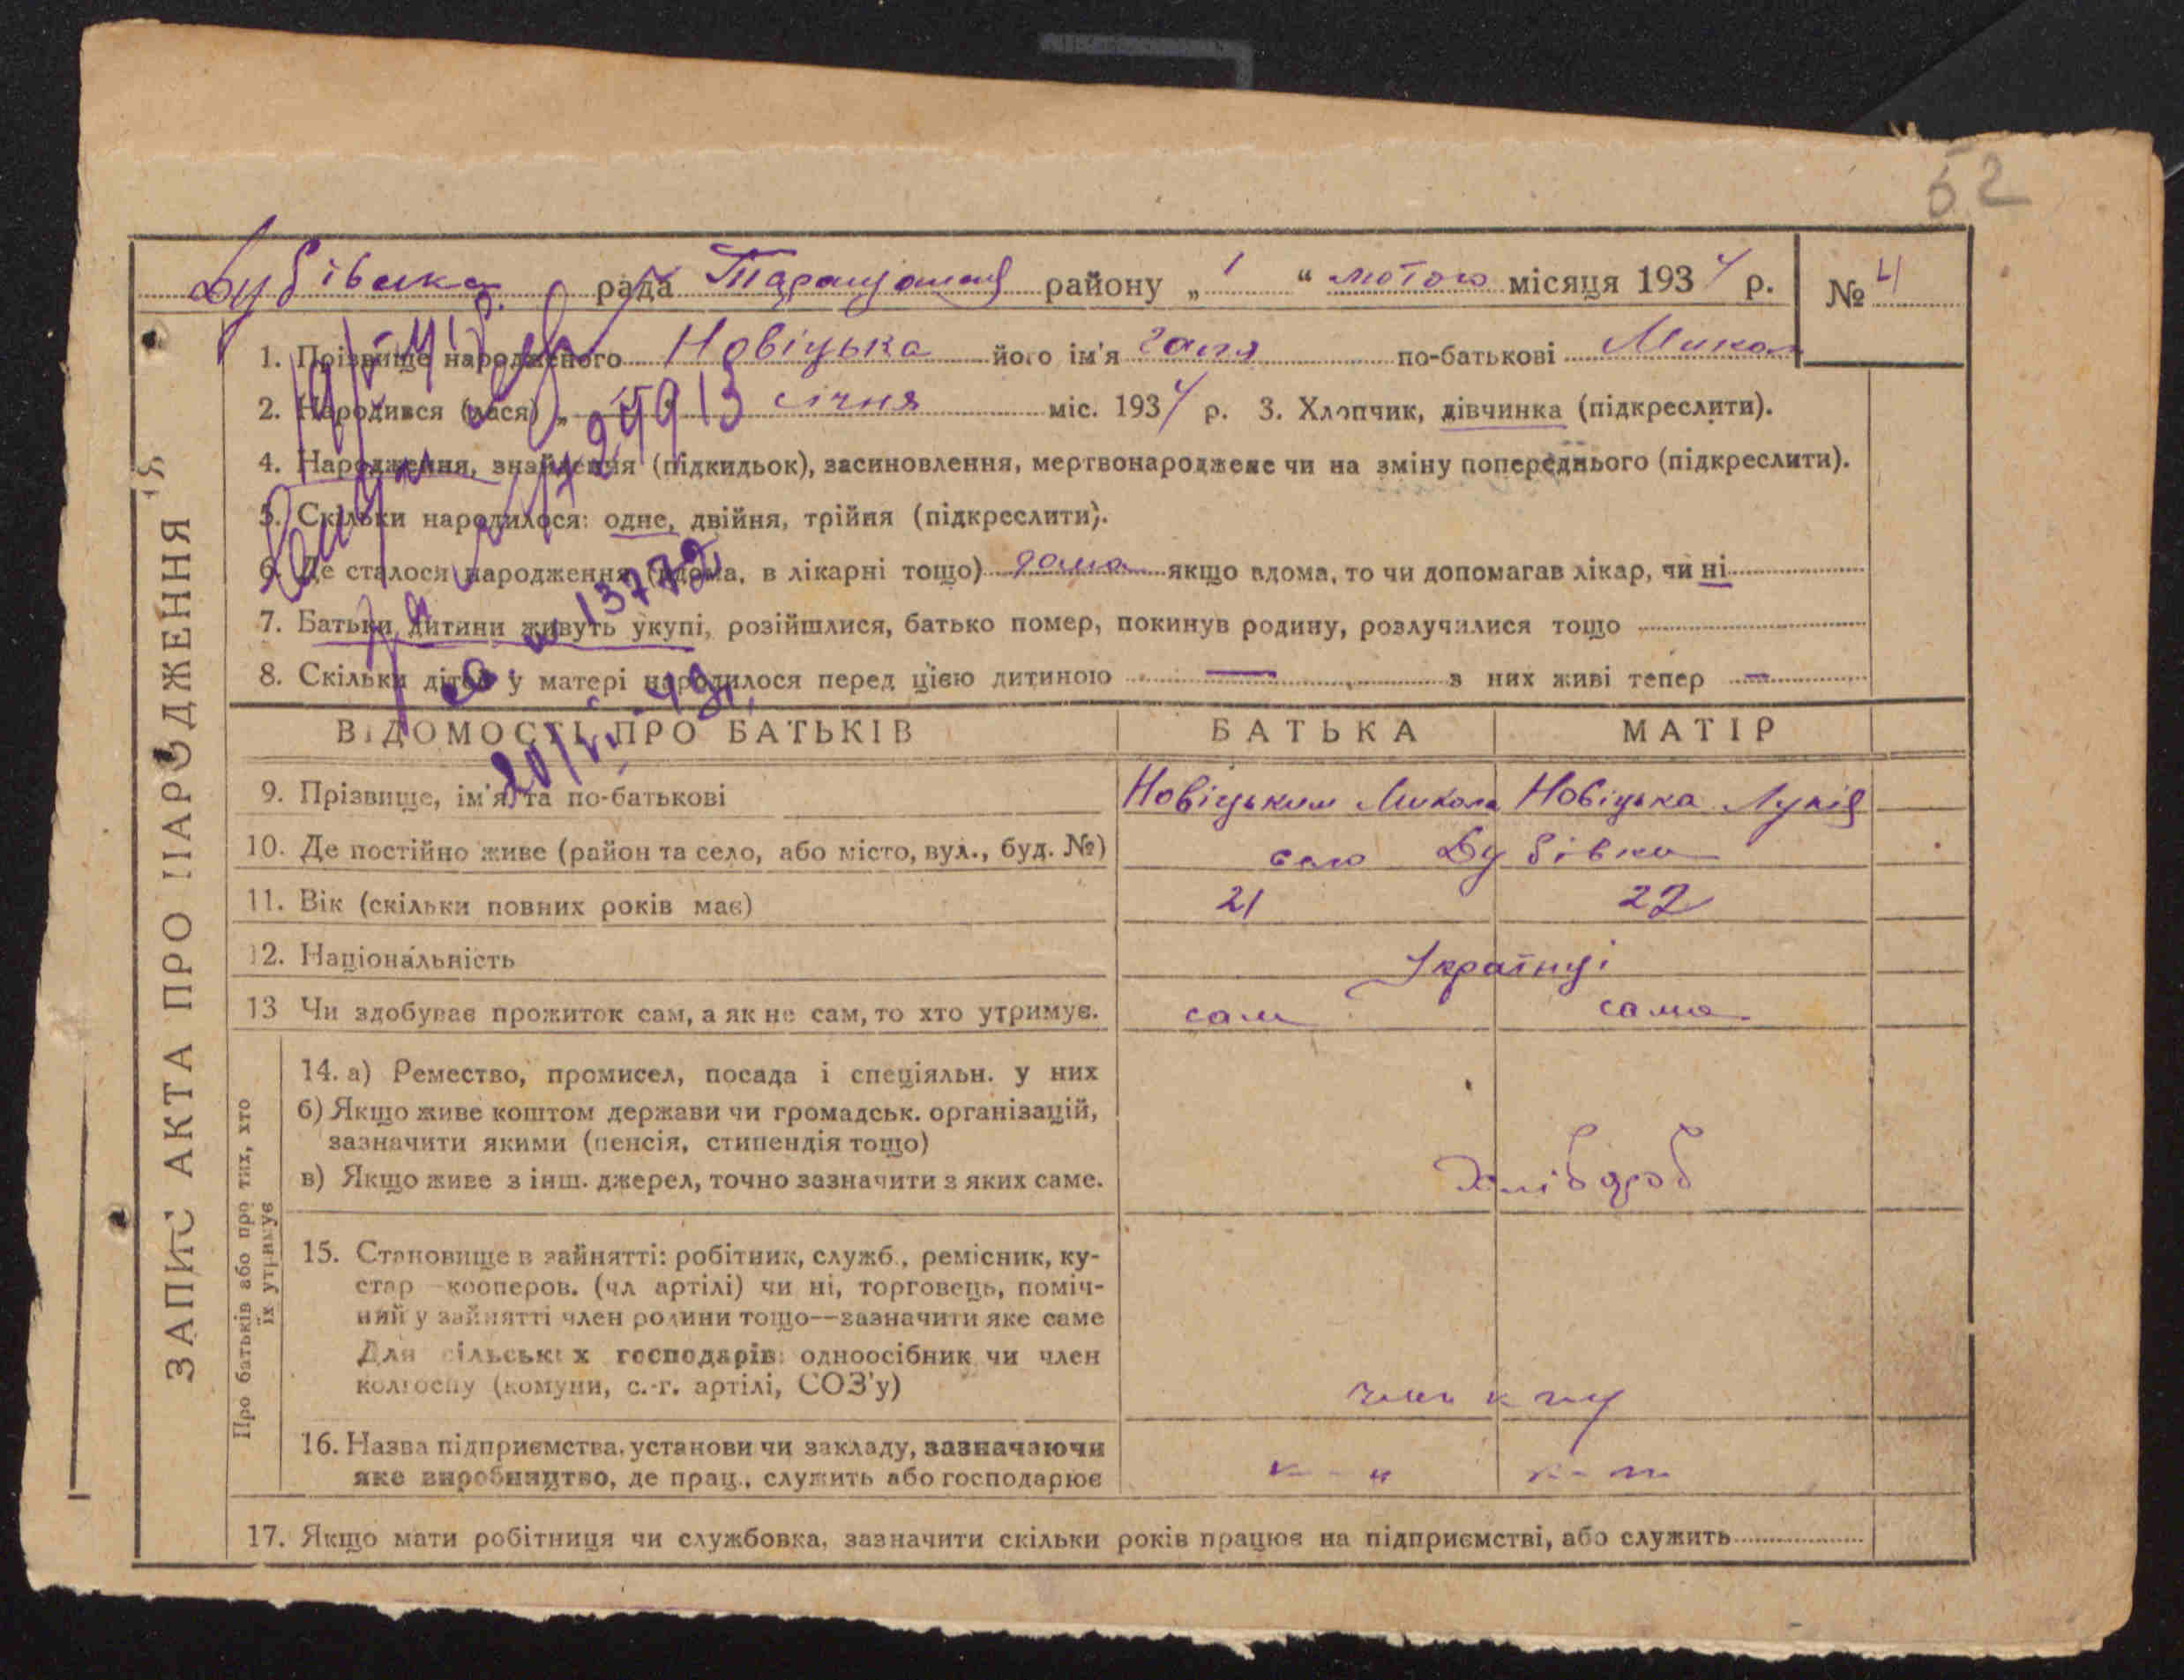 52
Дубівська рада Таращанськ району „1“ лютого місяця 1934 р. № 4
1. Прізвище народженого Новіцька його ім'я Галя по-батькові Микол
2. Народився (лася) „ січня міс. 1934 р. 3. Хлопчик, дівчинка (підкреслити).
4. Народження, знайдення (підкидьок), засиновлення, мертвонароджене чи на зміну попереднього (підкреслити).
5. Скільки народилося: одне, двійня, трійня (підкреслити).
6. Де сталося народження (вдома, в лікарні тощо) дома якщо вдома, то чи допомагав лікар, чи ні
7. Батьки дитини живуть укупі, розійшлися, батько помер, покинув родину, розлучилися тощо
8. Скільки дітей у матері народилося перед цією дитиною — з них живі тепер —
13772
ЗАПИС АКТА ПРО НАРОДЖЕННЯ
ВІДОМОСТІ ПРО БАТЬКІВ БАТЬКА МАТІР
9. Прізвище, ім'я та по-батькові Новіцький Микола Новіцька Лукія
10. Де постійно живе (район та село, або місто, вул., буд. №) село Дубівка
11. Вік (скільки повних років має) 21 22
12. Національність Українці
13 Чи здобуває прожиток сам, а як не сам, то хто утримує. сам сама
Про батьків або про тих, хто їх утримує
14. а) Ремество, промисел, посада і спеціяльн. у них
б) Якщо живе коштом держави чи громадськ. організацій,
зазначити якими (пенсія, стипендія тощо)
в) Якщо живе з інш. джерел, точно зазначити з яких саме. Хлібороб
15. Становище в зайнятті: робітник, служб., ремісник, ку-
стар—кооперов. (чл артілі) чи ні, торговець, поміч-
ний у зайнятті член родини тощо—зазначити яке саме
Для сільських господарів: одноосібник чи член
колгоспу (комуни, с.-г. артілі, СОЗ'у) член к-пу
16. Назва підприємства, установи чи закладу, зазначаючи
яке виробництво, де прац., служить або господарює
17. Якщо мати робітниця чи службовка, зазначити скільки років працює на підприємстві, або служить